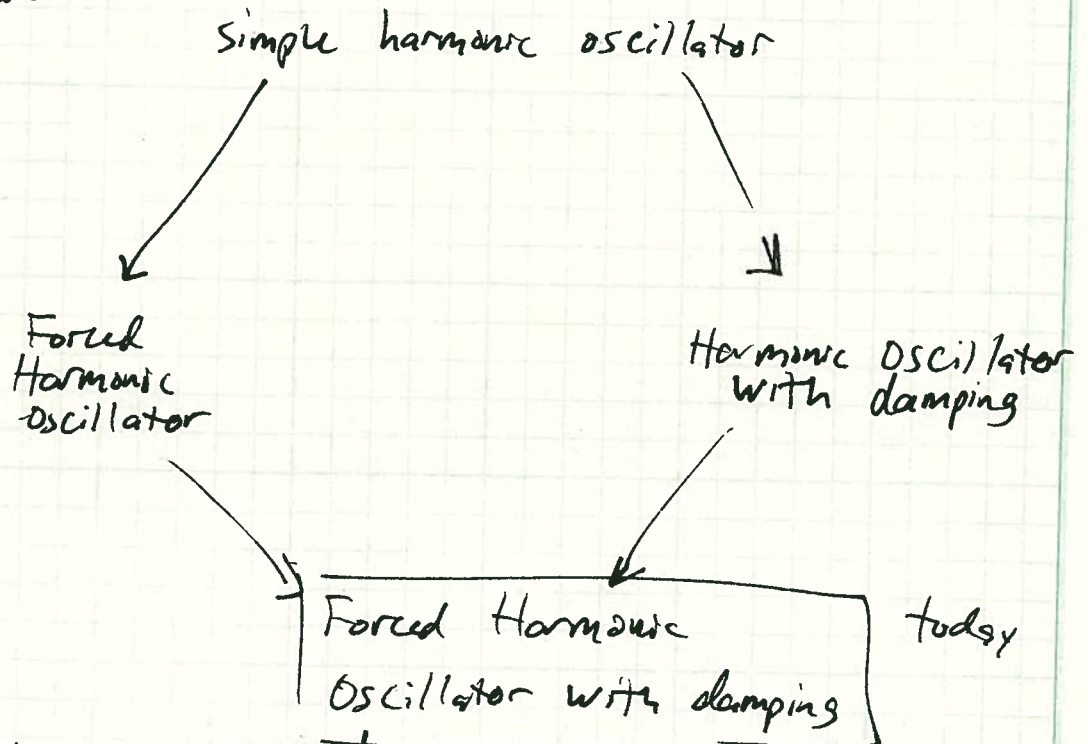 simple harmonic oscillator
Forced
Harmonic
Oscillator
Harmonic Oscillator
with damping
Forced Harmonic
Oscillator with damping
today